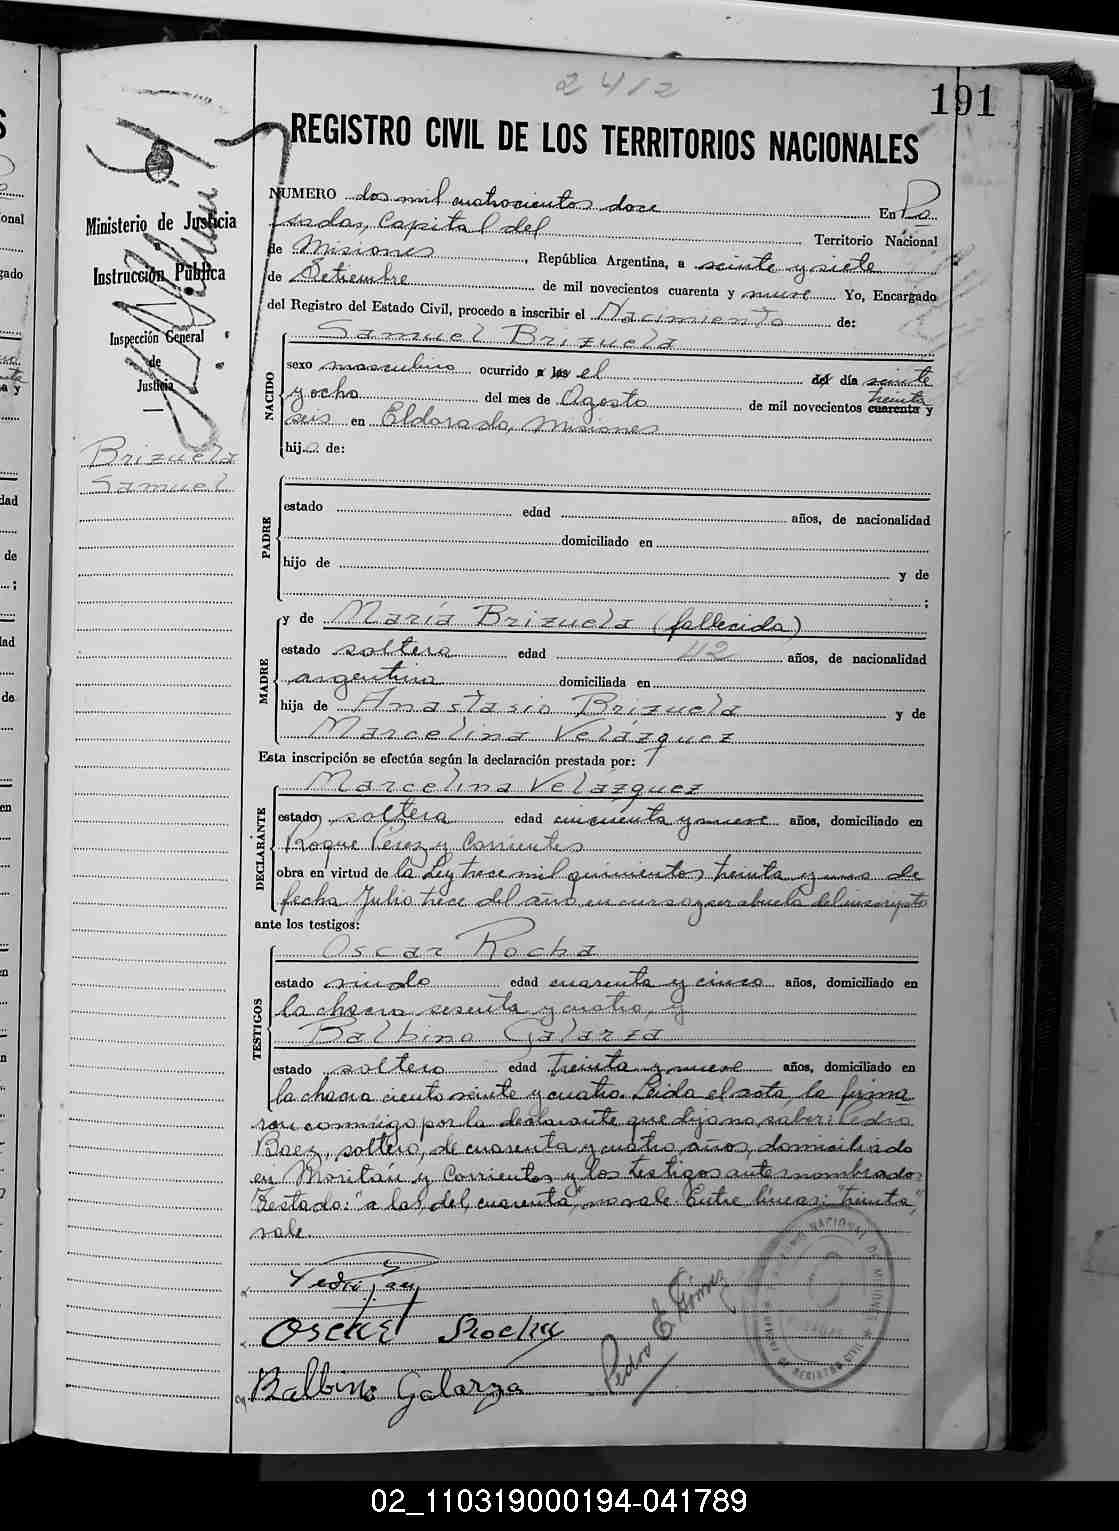 2412
191
REGISTRO CIVIL DE LOS TERRITORIOS NACIONALES
Ministerio de Justicia
e
Instrucción Pública
Inspección General
de
Justicia
Brizuela
Samuel
NUMERO dos mil cuatrocientos doce En Po
sadas, Capital del Territorio Nacional
de Misiones, República Argentina, a veinte y siete
de Setiembre de mil novecientos cuarenta y nueve Yo, Encargado
del Registro del Estado Civil, procedo a inscribir el Nacimiento de:
NACIDO
Samuel Brizuela
sexo masculino ocurrido a las el del día veinte
y ocho del mes de Agosto de mil novecientos cuarenta treinta y
seis en Eldorado, Misiones
hijo de:
PADRE
estado edad años, de nacionalidad
domiciliado en
hijo de y de
;
MADRE
y de María Brizuela (fallecida)
estado soltera edad 42 años, de nacionalidad
argentina domiciliada en
hija de Anastasio Brizuela y de
Marcelina Velázquez
Esta inscripción se efectúa según la declaración prestada por:
DECLARANTE
Marcelina Velázquez
estado soltera edad cincuenta y nueve años, domiciliado en
Roque Pérez y Corrientes
obra en virtud de la Ley trece mil quinientos treinta y uno de
fecha Julio trece del año en curso y ser abuela del inscripto
ante los testigos:
TESTIGOS
Oscar Rocha
estado viudo edad cuarenta y cinco años, domiciliado en
la chacra sesenta y cuatro, y
Balbino Galarza
estado soltero edad treinta y nueve años, domiciliado en
la chacra ciento veinte y cuatro. Leida el acta, la firma
ron conmigo por la declarante que dijo no saber: Pedro
Baez, soltero, de cuarenta y cuatro años, domiciliado
en Moritán y Corrientes y los testigos antes nombrados
Testado: "a las, del, cuarenta", no vale. Entre líneas: "treinta",
vale.
Oscar Rocha
Balbino Galarza
Pedro E. Gómez
02_110319000194-041789